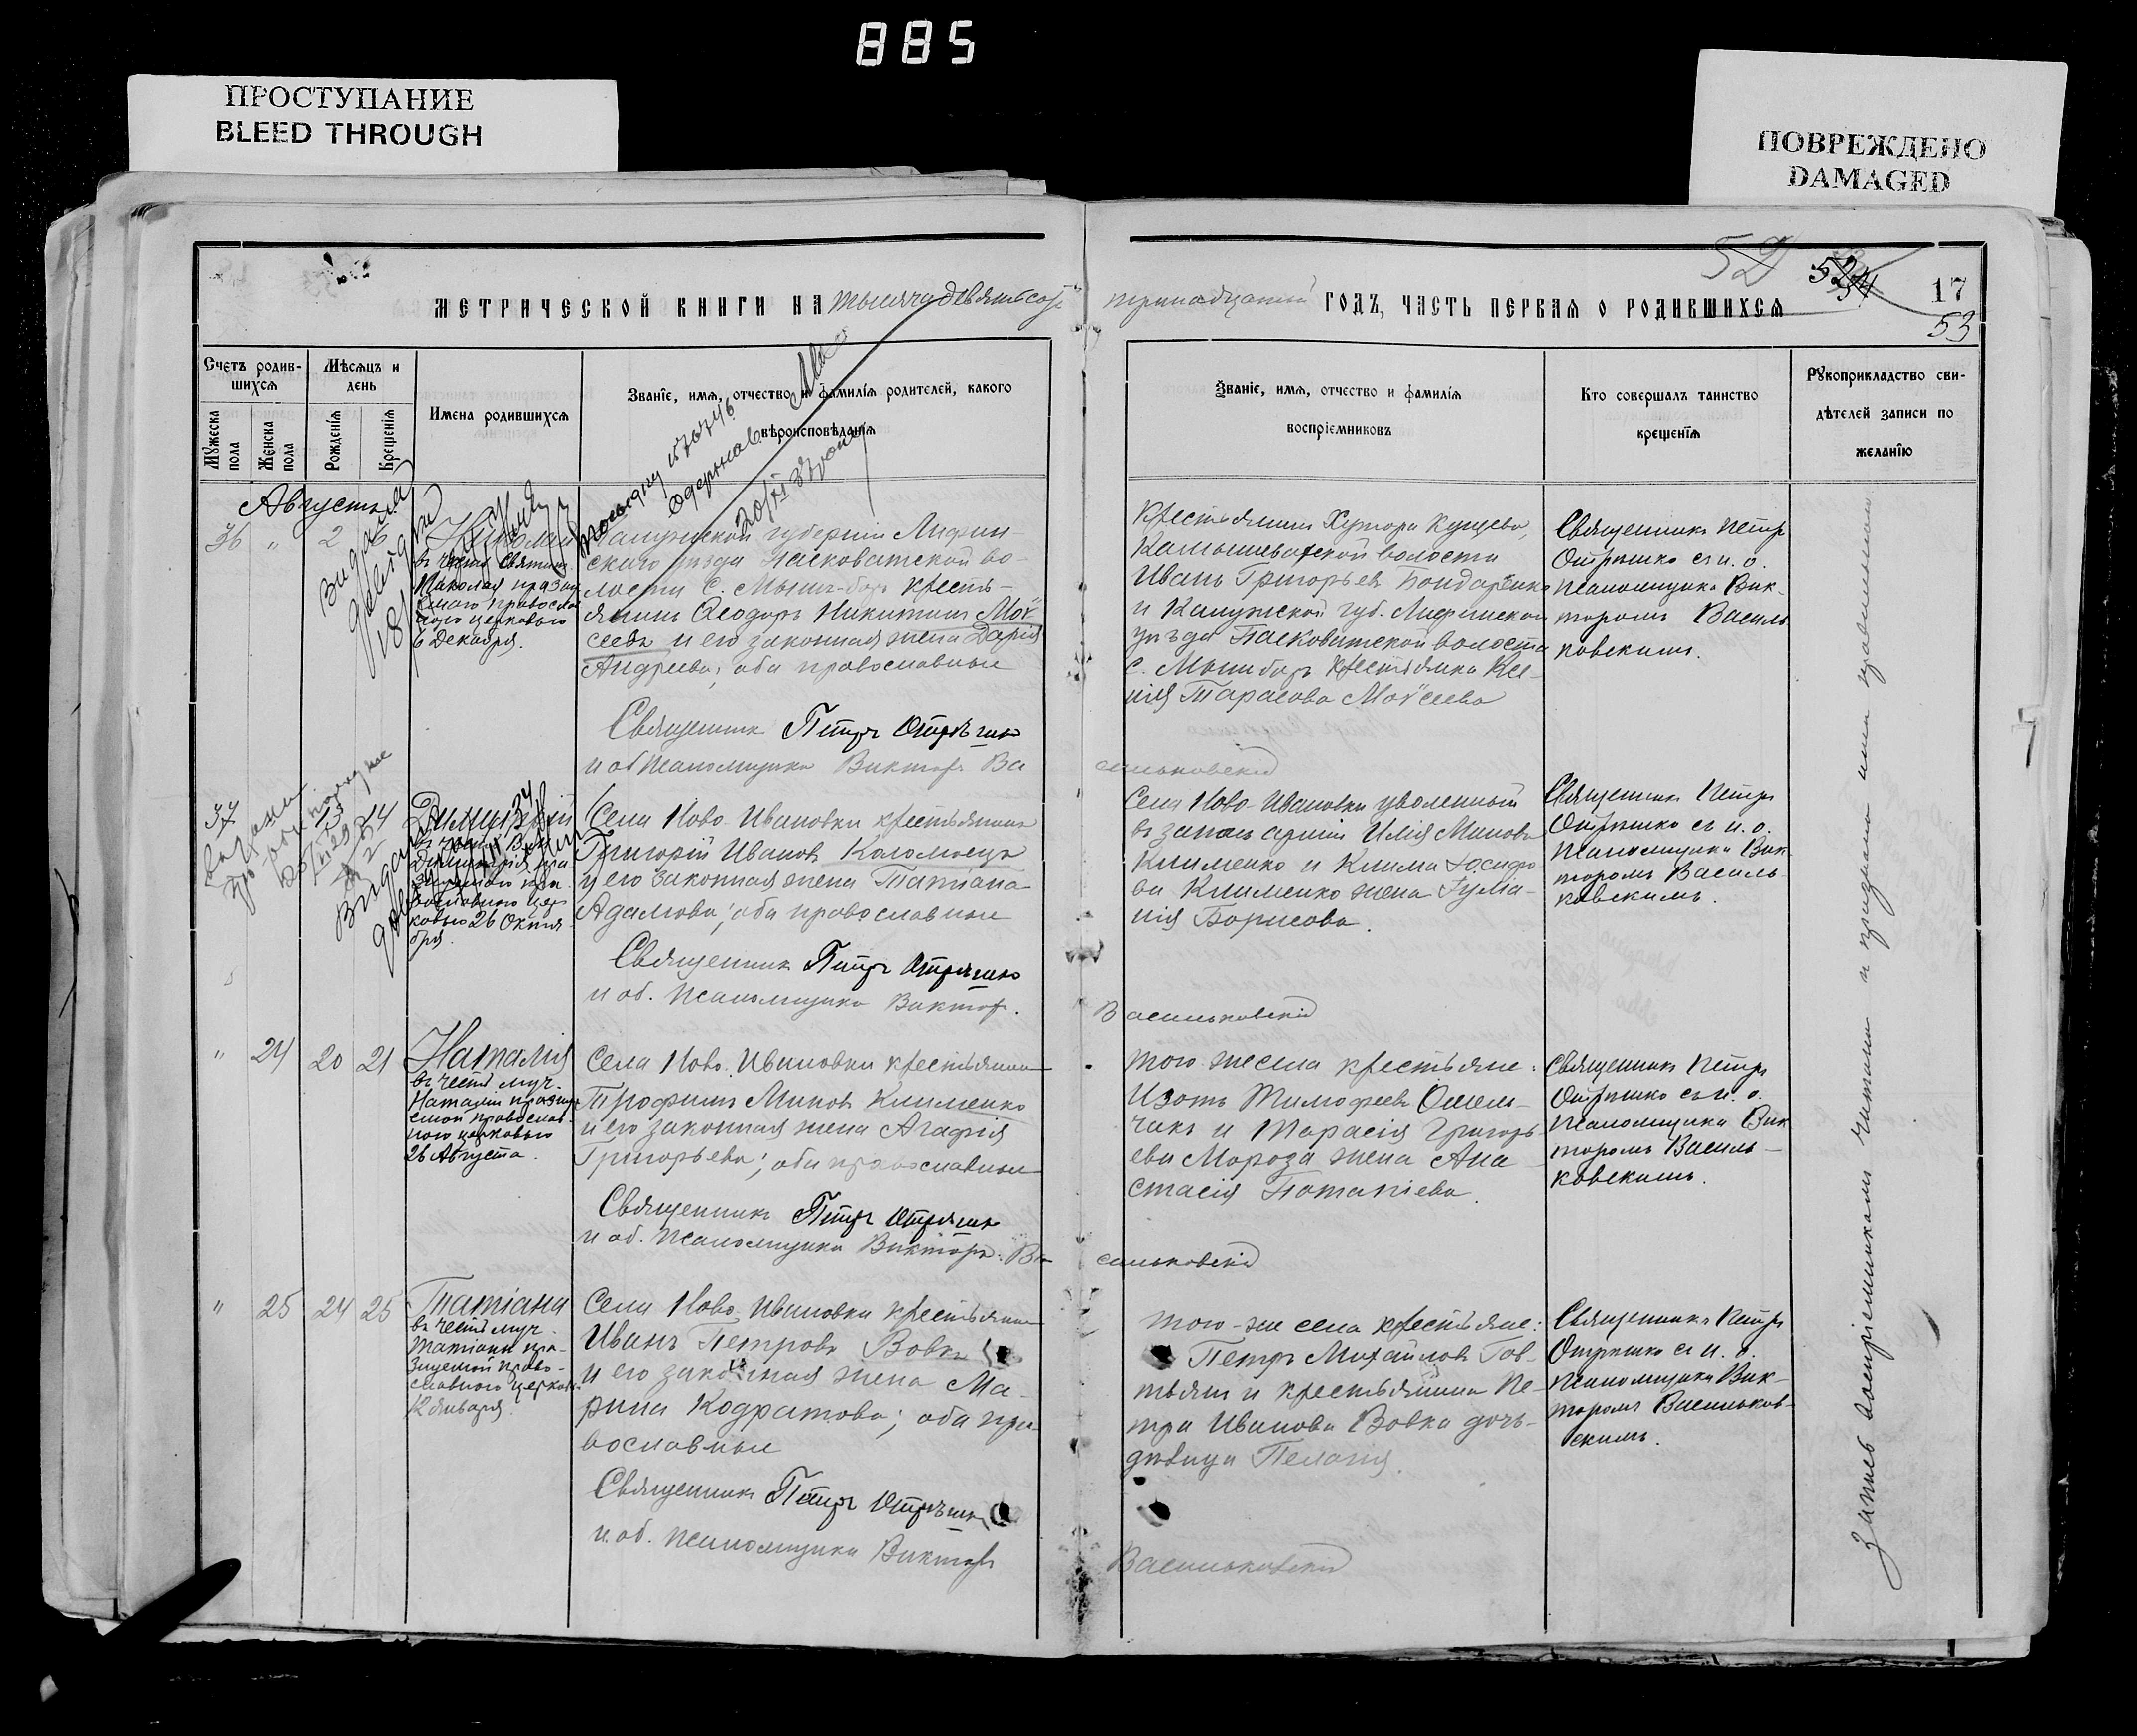 885
ПРОСТУПАНИЕ
BLEED THROUGH
ПОВРЕЖДЕНО
DAMAGED
МЕТРИЧЕСКОЙ КНИГИ НА тысяча девятьсотъ тринадцатый ГОДЪ, ЧАСТЬ ПЕРВАЯ О РОДИВШИХСЯ
52
17
53
Счетъ родив-
шихся
Мѣсяцъ и
день
Имена родившихся
Званіе, имя, отчество и фамилія родителей, какого
вѣроисповѣданія
Мужеска
пола
Женска
пола
Рожденія
Крещенія
Званіе, имя, отчество и фамилія
воспріемниковъ
Кто совершалъ таинство
крещенія
Рукоприкладство сви-
дѣтелей записи по
желанію
Августъ
36 " 2 6
Николай
въ честь Святит.
Николая праздн
православ
церковью
6 Декабря.
Калужской губерніи
скаго уѣзда Пасковатской во-
лости с. крестья-
янинъ Ѳеодоръ Никитинъ Мой
сеевъ и его законная жена Дарія
Андреева; оба православные
Священникъ Петръ Отрѣшко
и об псаломщика Викторъ Ва
сильковскій
Крестьянинъ Хутора Кущева,
Камышеватской волости
Иванъ Григорьевъ Бондаренко
и Калужской губ.
уѣзда Пасковатской волости
с. крестьянка Ксе-
нія Тарасова Мойсеева
Священникъ Петръ
Отрѣшко съ и. о.
псаломщика Вик-
торомъ Василь
ковскимъ.
37 13 14
Димитрій
въ честь Вмч.
Димитрія пра
православною цер
ковью 26 Октя
бря.
Села Ново-Ивановки крестьянинъ
Григорій Ивановъ Коломоецъ
и его законная жена Татіана
Адамова; оба православные
Священникъ Петръ Отрѣшко
и об. псаломщика Викторъ.
Васильковскій
Села Ново-Ивановки уволенный
въ запасъ арміи Илія Миновъ
Клименко и Клима Іосифо
ва Клименко жена Іуліа-
нія Борисова.
Священникъ Петръ
Отрѣшко съ и. о.
псаломщика Вик
торомъ Василь
ковскимъ.
" 24 20 21
Наталія
въ честь муч.
Наталіи праздну
емой православ-
ною церковью
26 Августа.
Села Ново-Ивановки крестьянинъ
Трофимъ Миновъ Клименко
и его законная жена Агафія
Григорьева; оба православные
Священникъ Петръ Отрѣшко
и об. псаломщика Викторъ Ва
сильковскій
того же села крестьяне:
Изотъ Тимофеевъ Омель-
чакъ и Тарасія Григорь
ева Мороза жена Ана
стасія Потапіева.
Священникъ Петръ
Отрѣшко съ и. о.
псаломщика Вик
торомъ Василь-
ковскимъ.
" 25 24 25
Татіана
въ честь муч.
Татіаны пра-
здуемой право-
славною церковью
12 Января.
Села Ново-Ивановки крестьянинъ
Иванъ Петровъ Вовкъ
и его законная жена Ма-
рина Кодратова; оба пра-
вославные
Священникъ Петръ Отрѣшко
и. об. псаломщика Викторъ
Васильковскій
того-же села крестьяне:
Петръ Михайловъ Гов-
тьянъ и крестьянина Пе-
тра Иванова Вовка дочь-
дѣвица Пелагія.
Священникъ Петръ
Отрѣшко съ и. о.
псаломщика Вик-
торомъ Васильков-
скимъ.
Запись воспріемникамъ читана и признана ими правильною